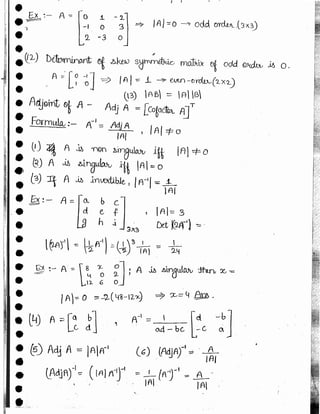 Ex :- A = [0 1 -2; -1 0 3; 2 -3 0] ⇒ |A| = 0 → odd order (3×3)
(12) Determinant of skew symmetric matrix of odd order is 0.
A = [0 -1; 1 0] ⇒ |A| = 1 → even-order (2×2)
(13) |AB| = |A| |B|
Adjoint of A - Adj A = [Cofactor A]^T
Formula :- A^-1 = Adj A / |A| , |A| ≠ 0
(1) A is non singular iff |A| ≠ 0
(2) A is singular iff |A| = 0
(3) If A is invertible, |A^-1| = 1/|A|
Ex :- A = [a b c; d e f; g h i]3×3 , |A| = 3
Det [(2A)^-1] = -
|(2A)^-1| = |1/2 A^-1| = (1/2)^3 1/|A| = 1/24
Ex :- A = [8 x 0; 4 0 2; 12 6 0] ; A is singular then x =
|A| = 0 = -2(48-12x) ⇒ x = 4 Ans.
(4) A = [a b; c d] , A^-1 = 1/(ad - bc) [d -b; -c a]
(5) Adj A = |A| A^-1 (6) (Adj A)^-1 = A/|A|
(Adj A)^-1 = (|A| A^-1)^-1 = 1/|A| (A^-1)^-1 = A/|A|